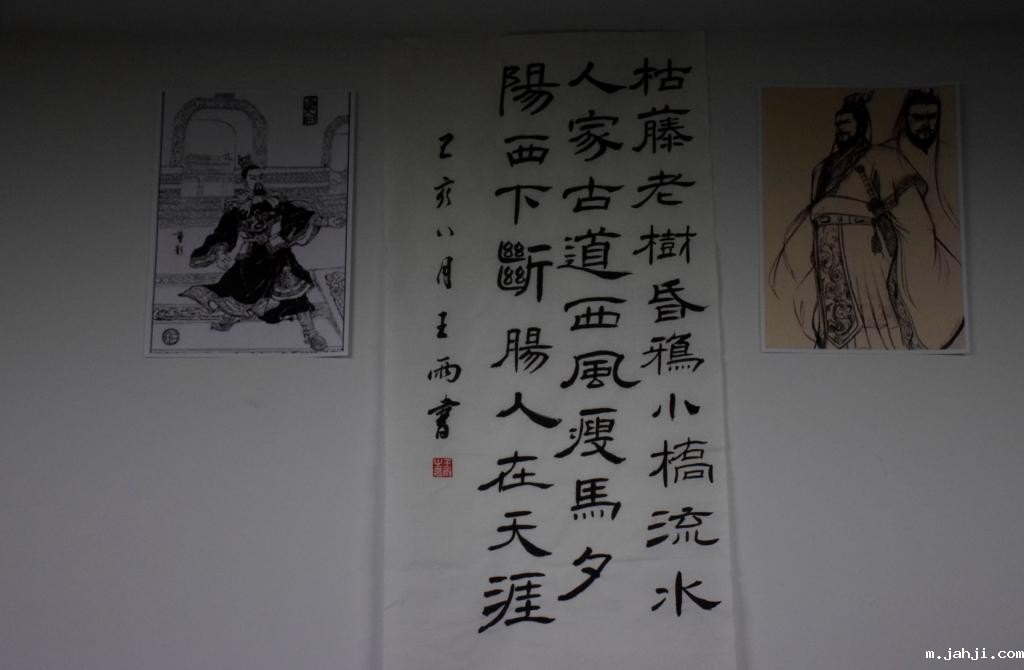 枯藤老樹昏鴉小橋流水
人家古道西風瘦馬夕
陽西下斷腸人在天涯
乙亥八月王雨書
m.jahji.com